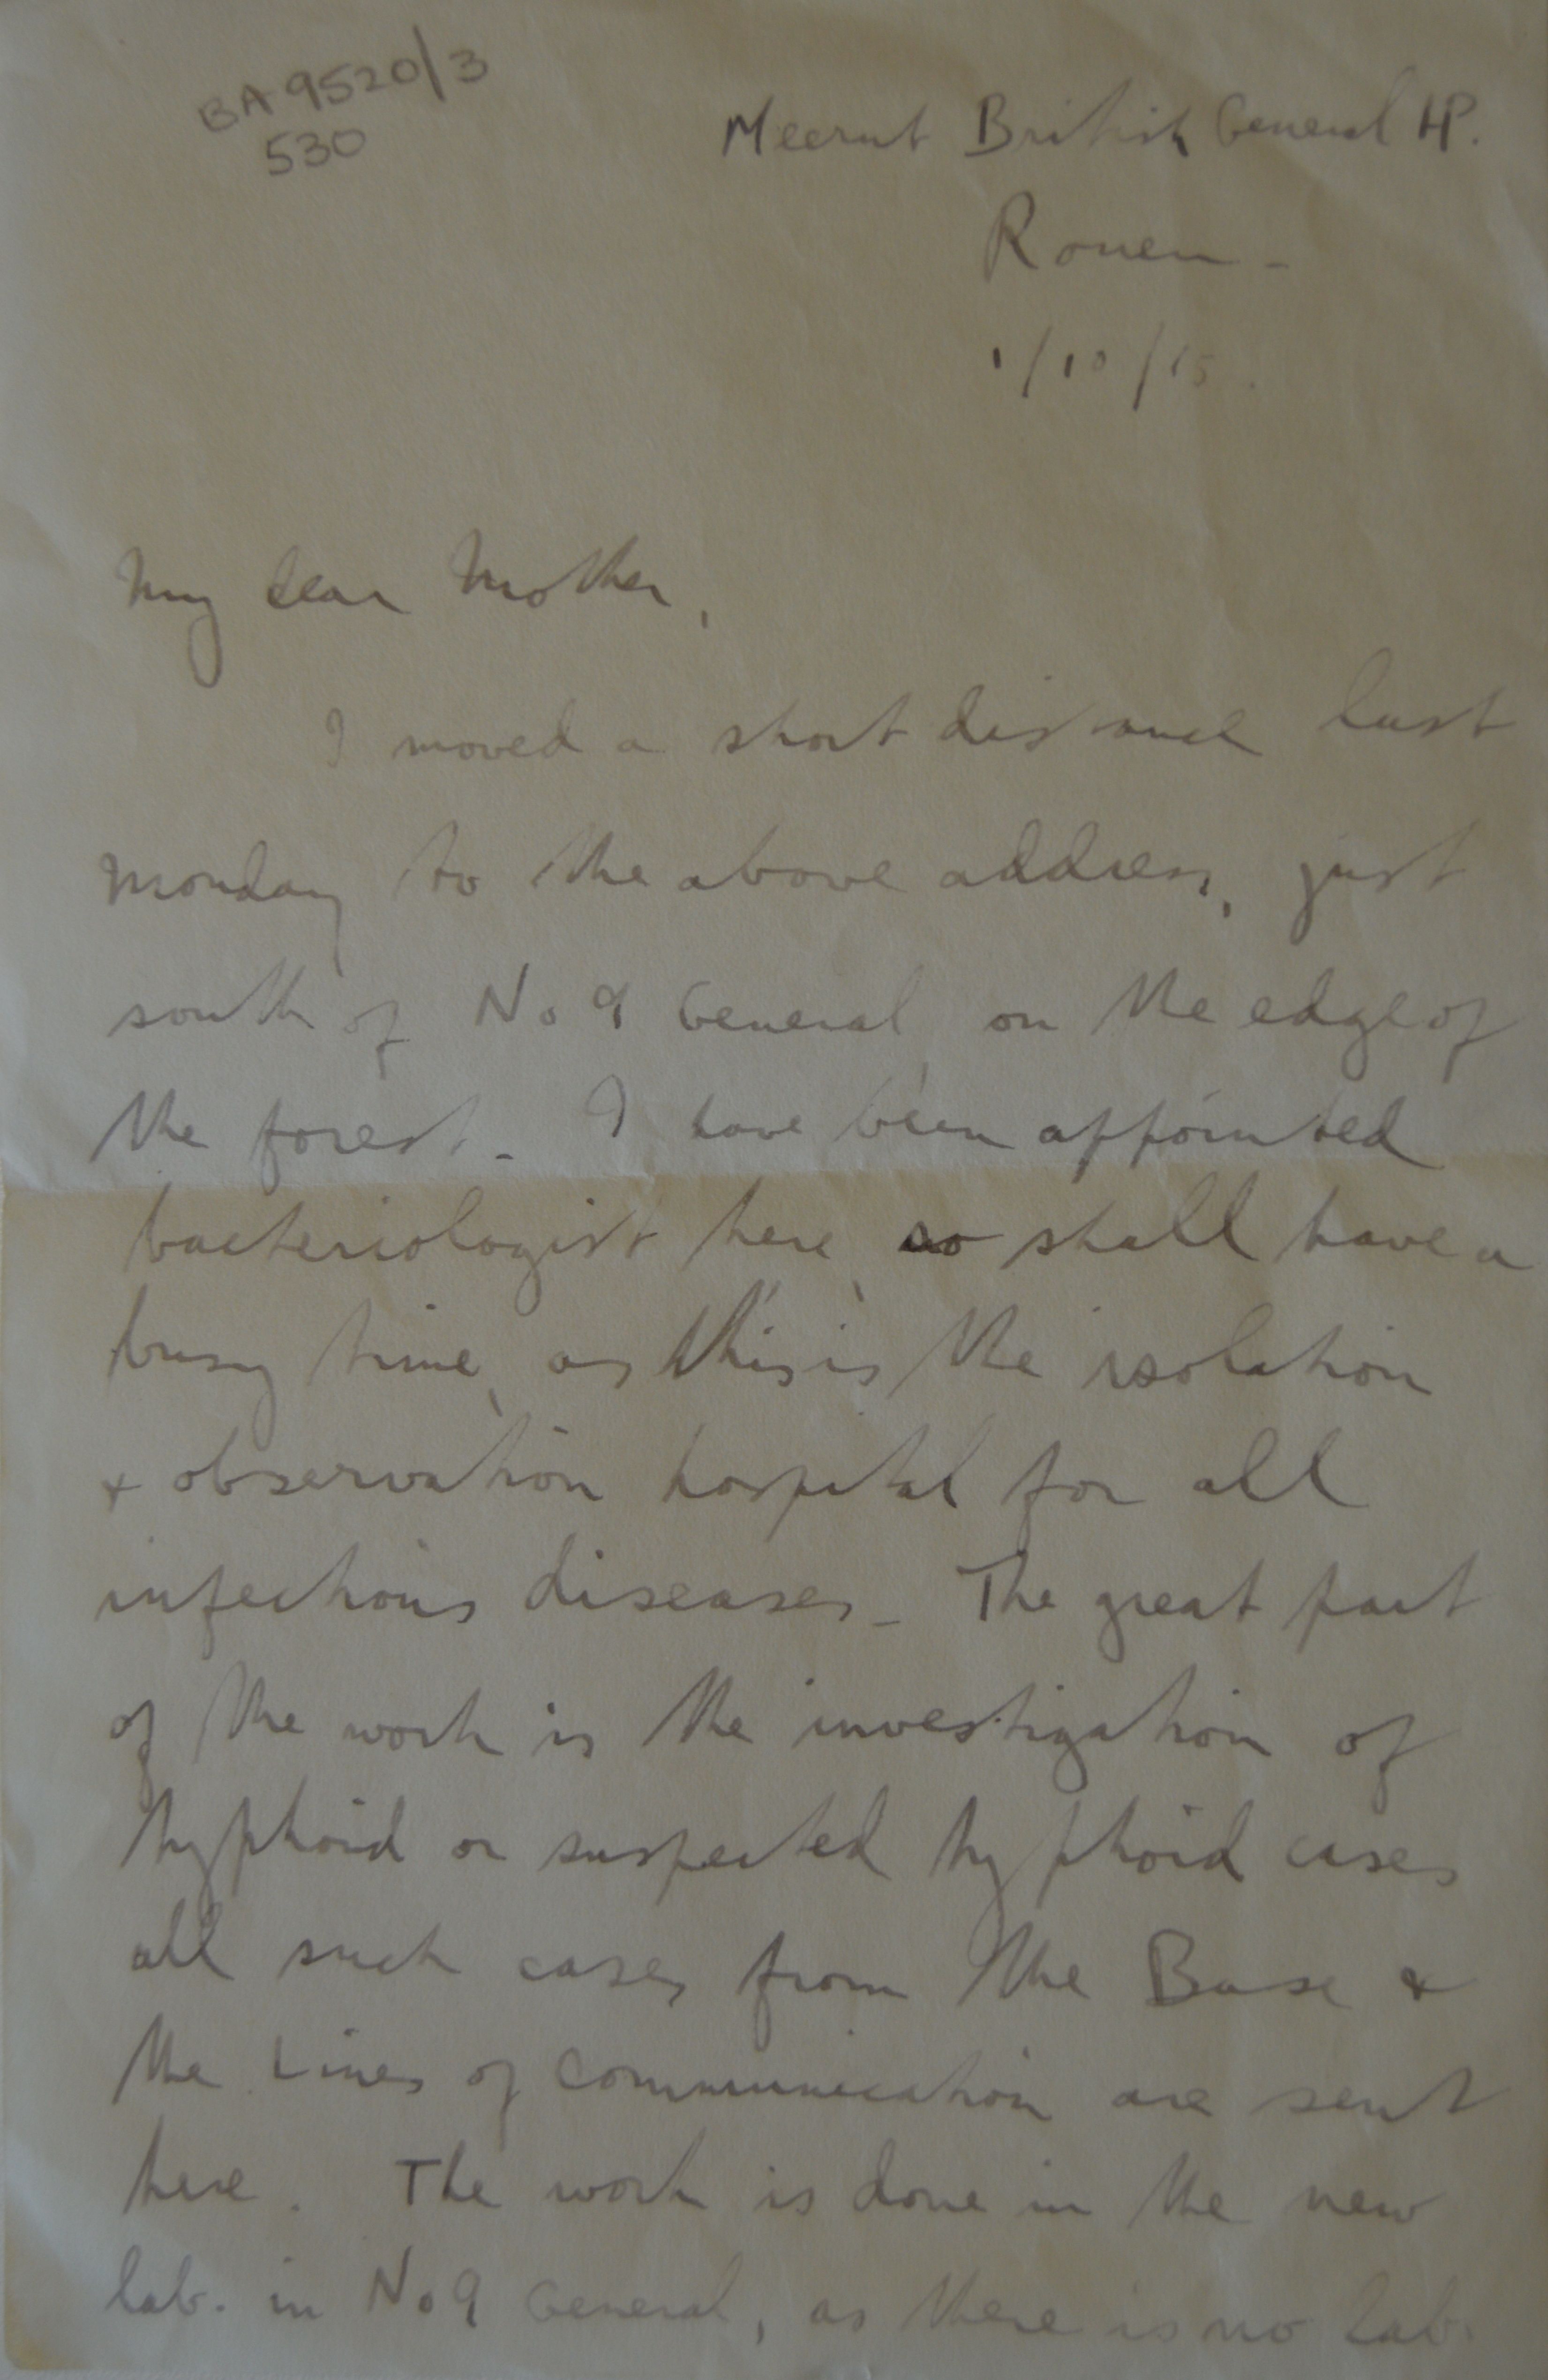 BA 9520/3
530
Meerut British General HP.
Rouen -
1/10/15.
My dear Mother,
I moved a short distance last
Monday to the above address, just
south of No 9 General, on the edge of
the forest. I have been appointed
bacteriologist here, so shall have a
busy time, as this is the isolation
& observation hospital for all
infectious diseases. The great part
of the work is the investigation of
typhoid or suspected typhoid cases
all such cases from the Base &
the Lines of Communication are sent
here. The work is done in the new
lab. in No 9 General, as there is no lab.